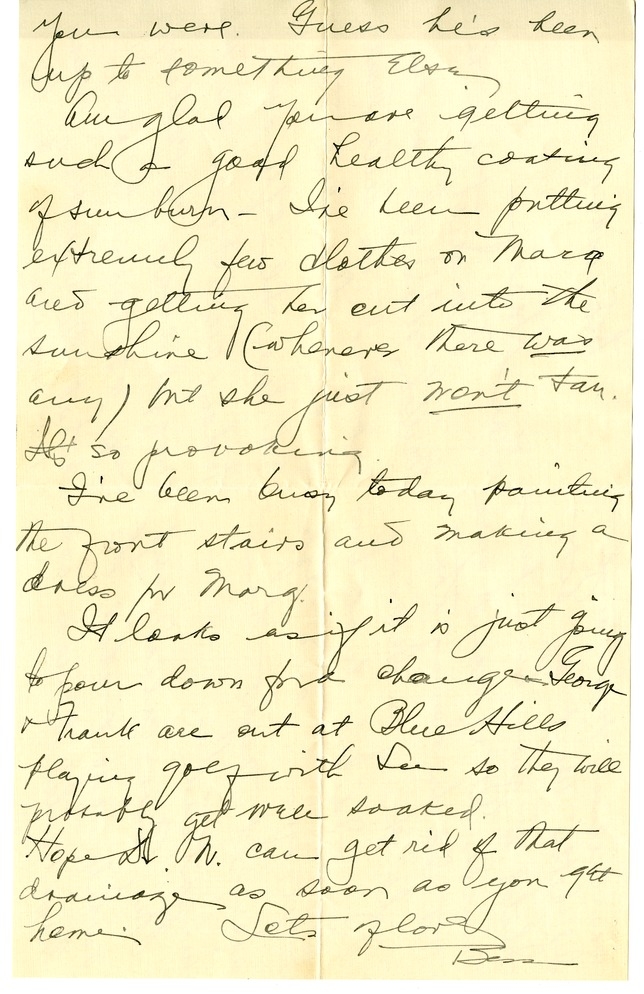 you were. Guess he's been
up to something else.
Am glad you are getting
such a good healthy coating
of sunburn – I've been putting
extremely few clothes on Marg
and getting her out into the
sunshine (whenever there was
any) but she just won't tan.
It's so provoking.
I've been busy today painting
the front stairs and making a
dress for Marg.
It looks as if it is just going
to pour down for a change – George
& Frank are out at Blue Hills
playing golf with so they will
probably get well soaked.
Hope Dr. W. can get rid of that
drainage as soon as you get
home. Lots of love
Bess